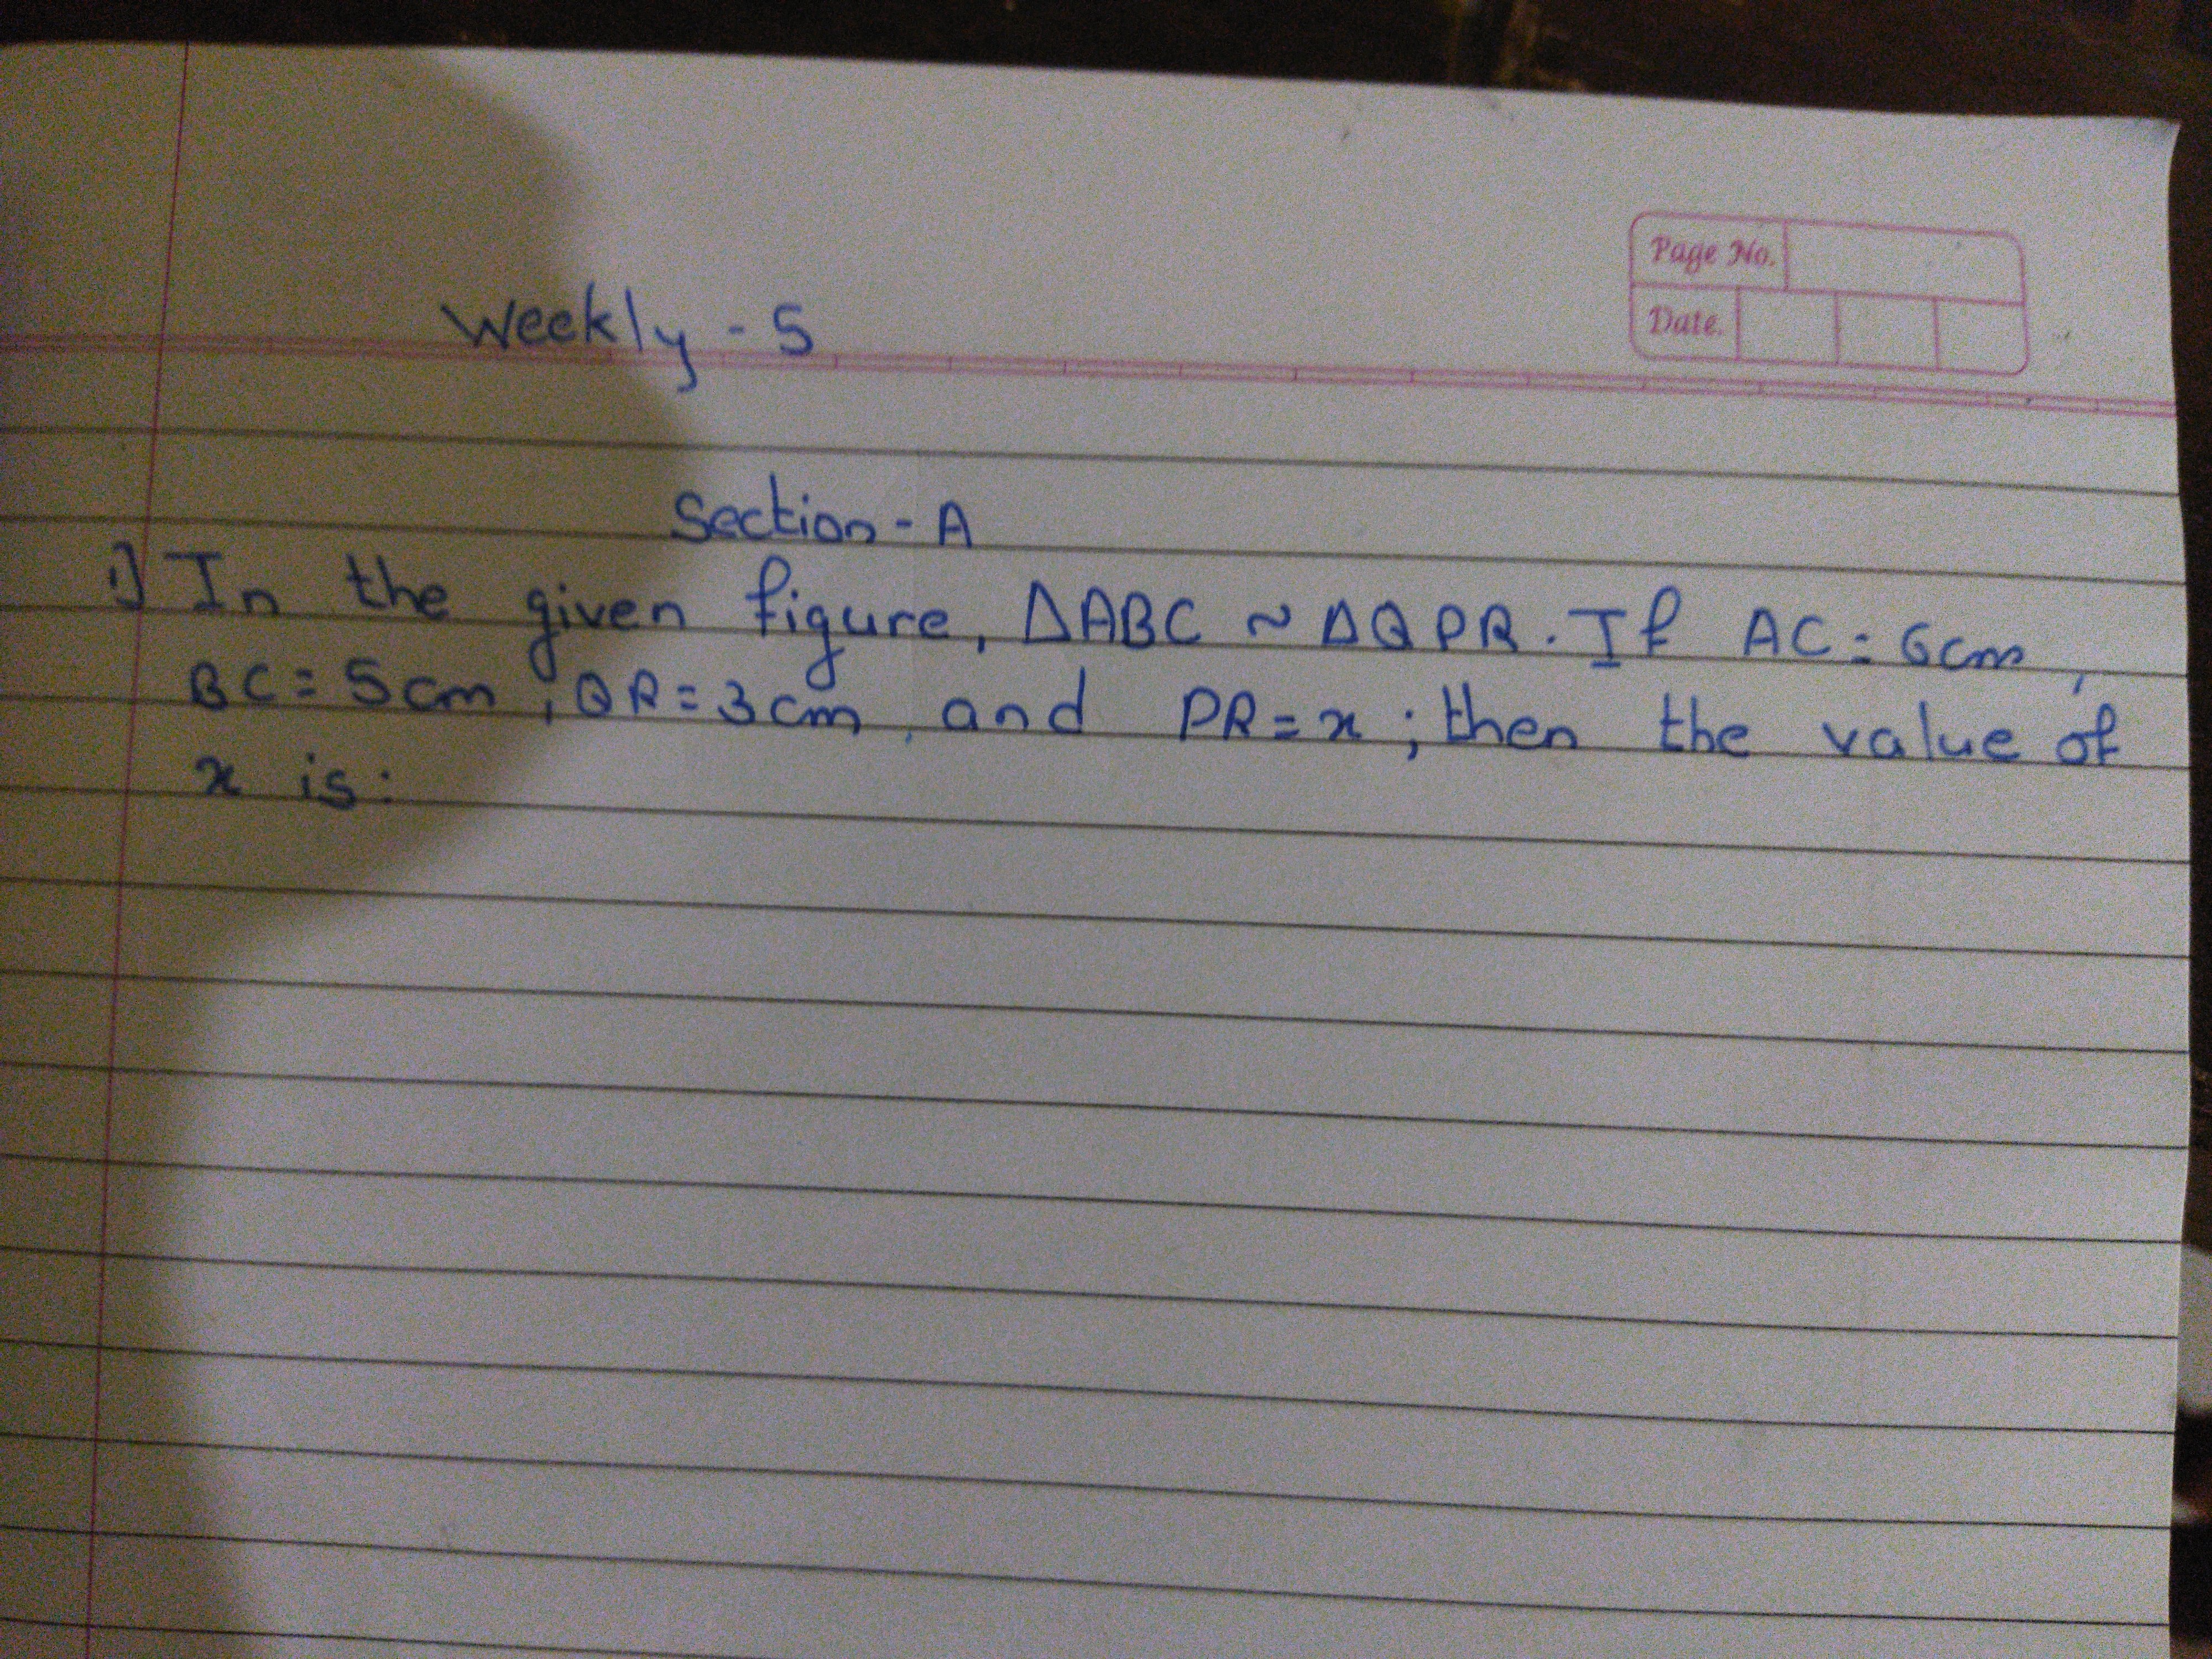 Page No.
Date.
Weekly - 5
Section - A
1) In the given figure, ΔABC ~ ΔQPR. If AC = 6cm,
BC = 5cm, QR = 3cm, and PR = x; then the value of
x is: